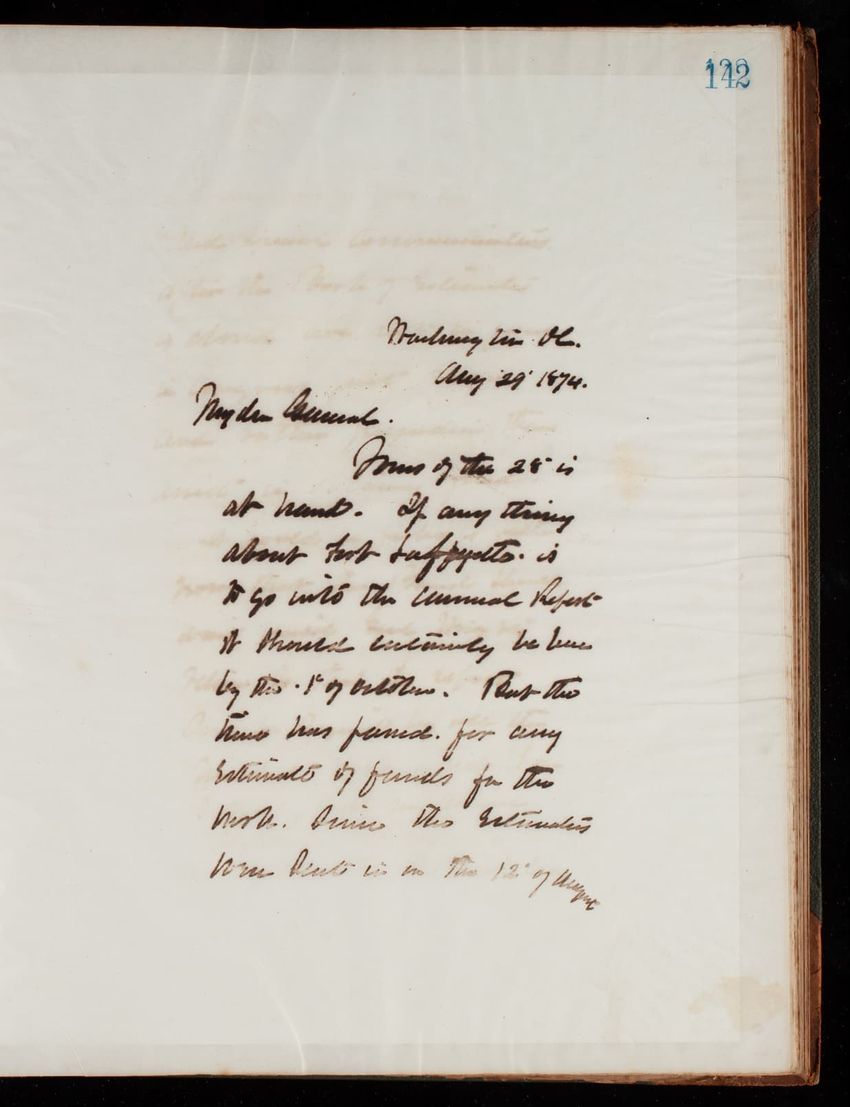 142
Washington DC.
Aug 29 1874.
My dear General.
Yours of the 28" is
at hand. If any thing
about Fort Lafayette is
to go into the annual Report
it should certainly be here
by the 1st of October. But the
time has passed for any
Estimate of funds for the
work. Since the Estimates
were sent in on the 12" of August